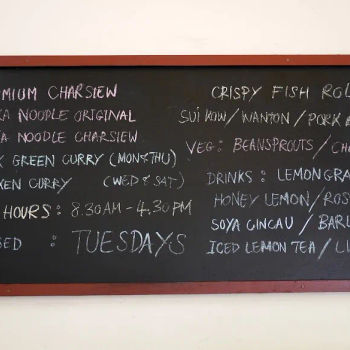 MIUM CHARSIEW
KA NOODLE ORIGINAL
KA NOODLE CHARSIEW
K GREEN CURRY (MON & THU)
KEN CURRY (WED & SAT)
HOURS : 8.30AM - 4.30PM
SED : TUESDAYS
CRISPY FISH ROL
SUI KOW / WANTON / PORK
VEG : BEANSPROUTS / CHO
DRINKS : LEMONGRA
HONEY LEMON / ROS
SOYA CINCAU / BARL
ICED LEMON TEA / LI